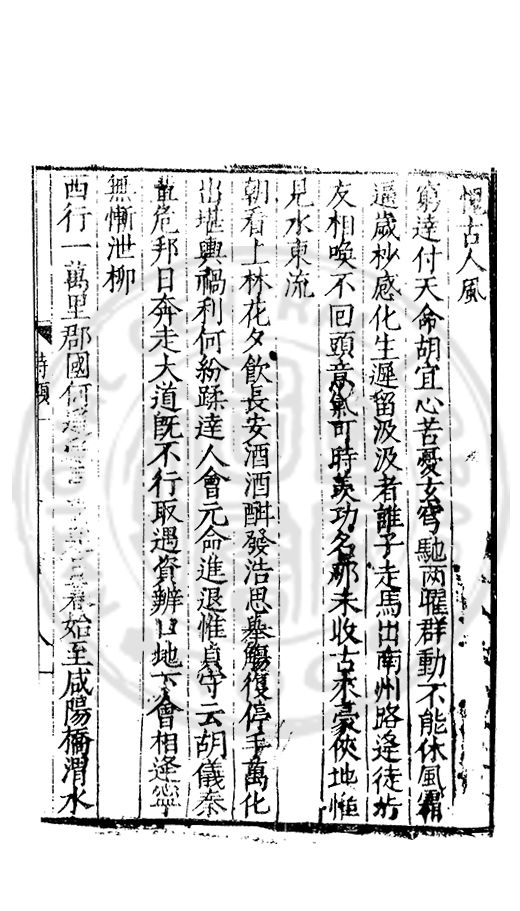 懷古人風
窮達付天命胡宜心苦憂玄穹馳兩曜群動不能休風霜
逼歲杪感化生遲留汲汲者誰子走馬出南州路逢徒步
友相喚不回頭意氣可時羨功名那未收古來豪俠地惟
見水東流
朝看上林花夕飲長安酒酒酣發浩思舉觴復停手萬化
出堪輿禍利何紛蹂達人會元命進退惟貞守云胡儀秦
軰危邦日奔走大道既不行取遇資辨口地下會相逢寧
無慚泄柳
西行一萬里郡國何春始至咸陽橋渭水